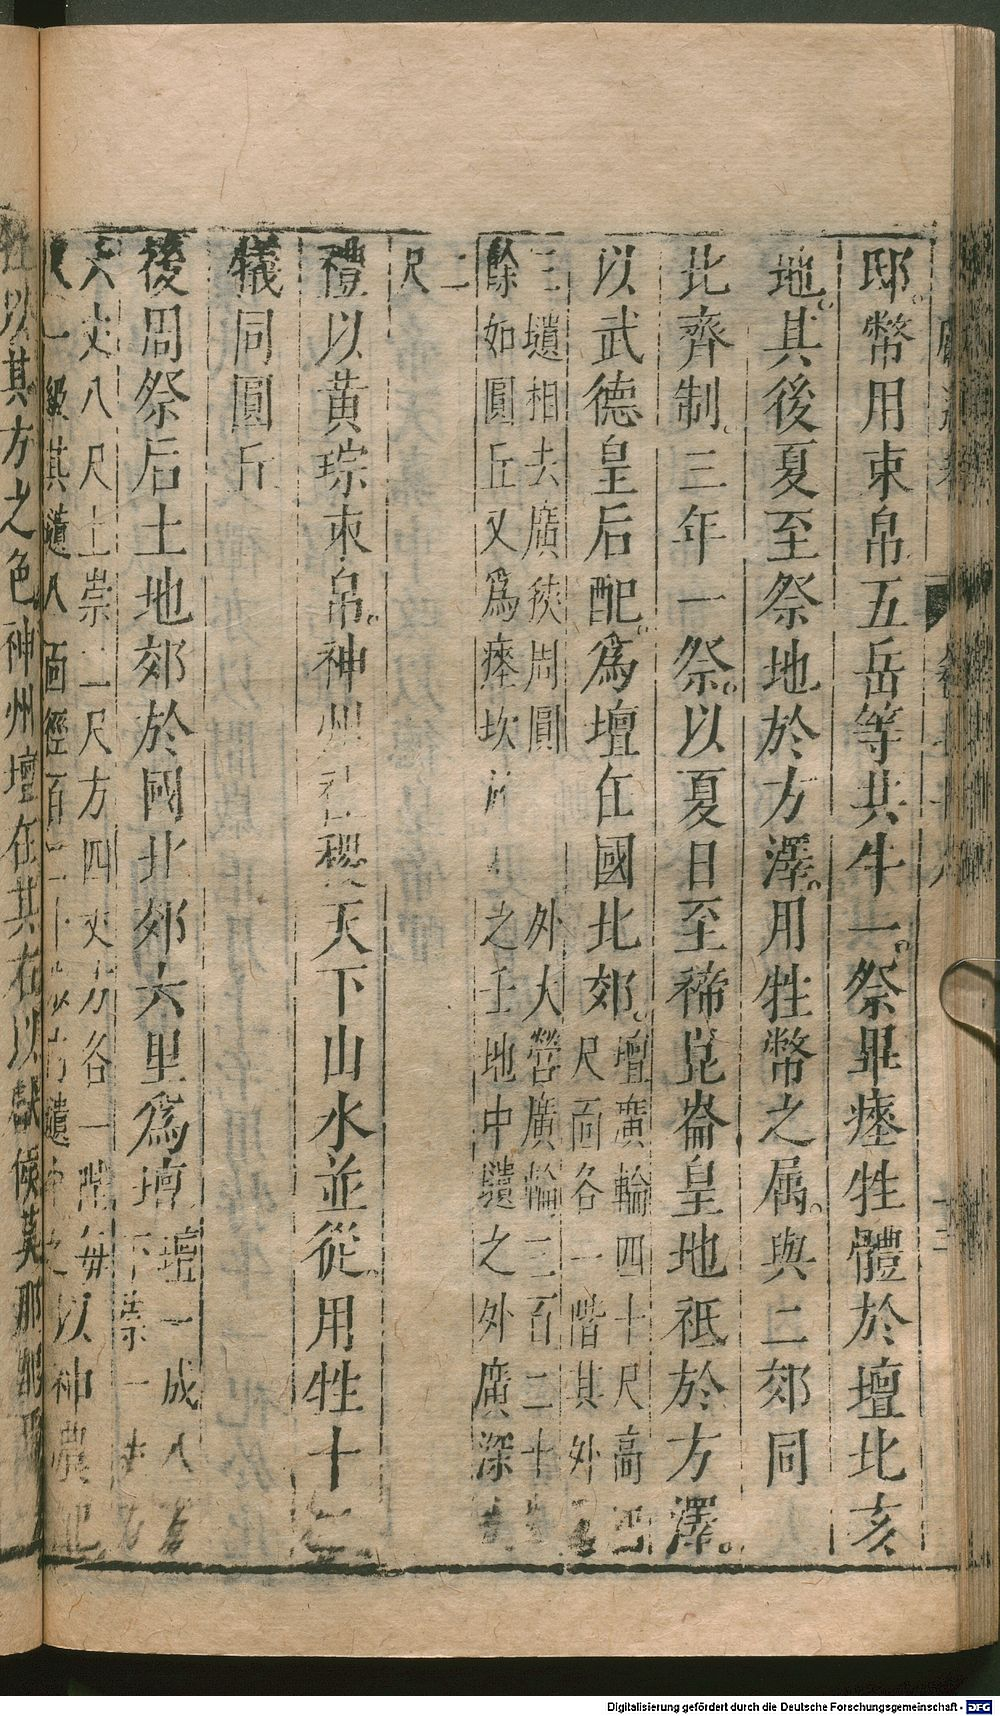 邸幣用束帛五岳等共牛一祭畢瘞牲體於壇北亥
地其後夏至祭地於方澤用牲幣之属與二郊同
北齊制三年一祭以夏日至禘崑崙皇地祇於方澤
以武德皇后配爲壇在國北郊壇廣輪四十尺高四
尺面各一階其外
三壝相去廣狹周圓外大營廣輪三百二十
餘如圓丘又爲瘞坎於之壬地中壝之外廣深
二
尺
禮以黄琮束帛神州社稷天下山水並從用牲十二
儀同圓丘
後周祭后土地郊於國北郊六里爲壇壇一成八
下崇一丈
六丈八尺上崇一尺方四丈方各一階每以神農配
一級其壝八面徑百二十
以其方之色神州壇在其右以獻侯莫那配焉
Digitalisierung gefördert durch die Deutsche Forschungsgemeinschaft - DFG